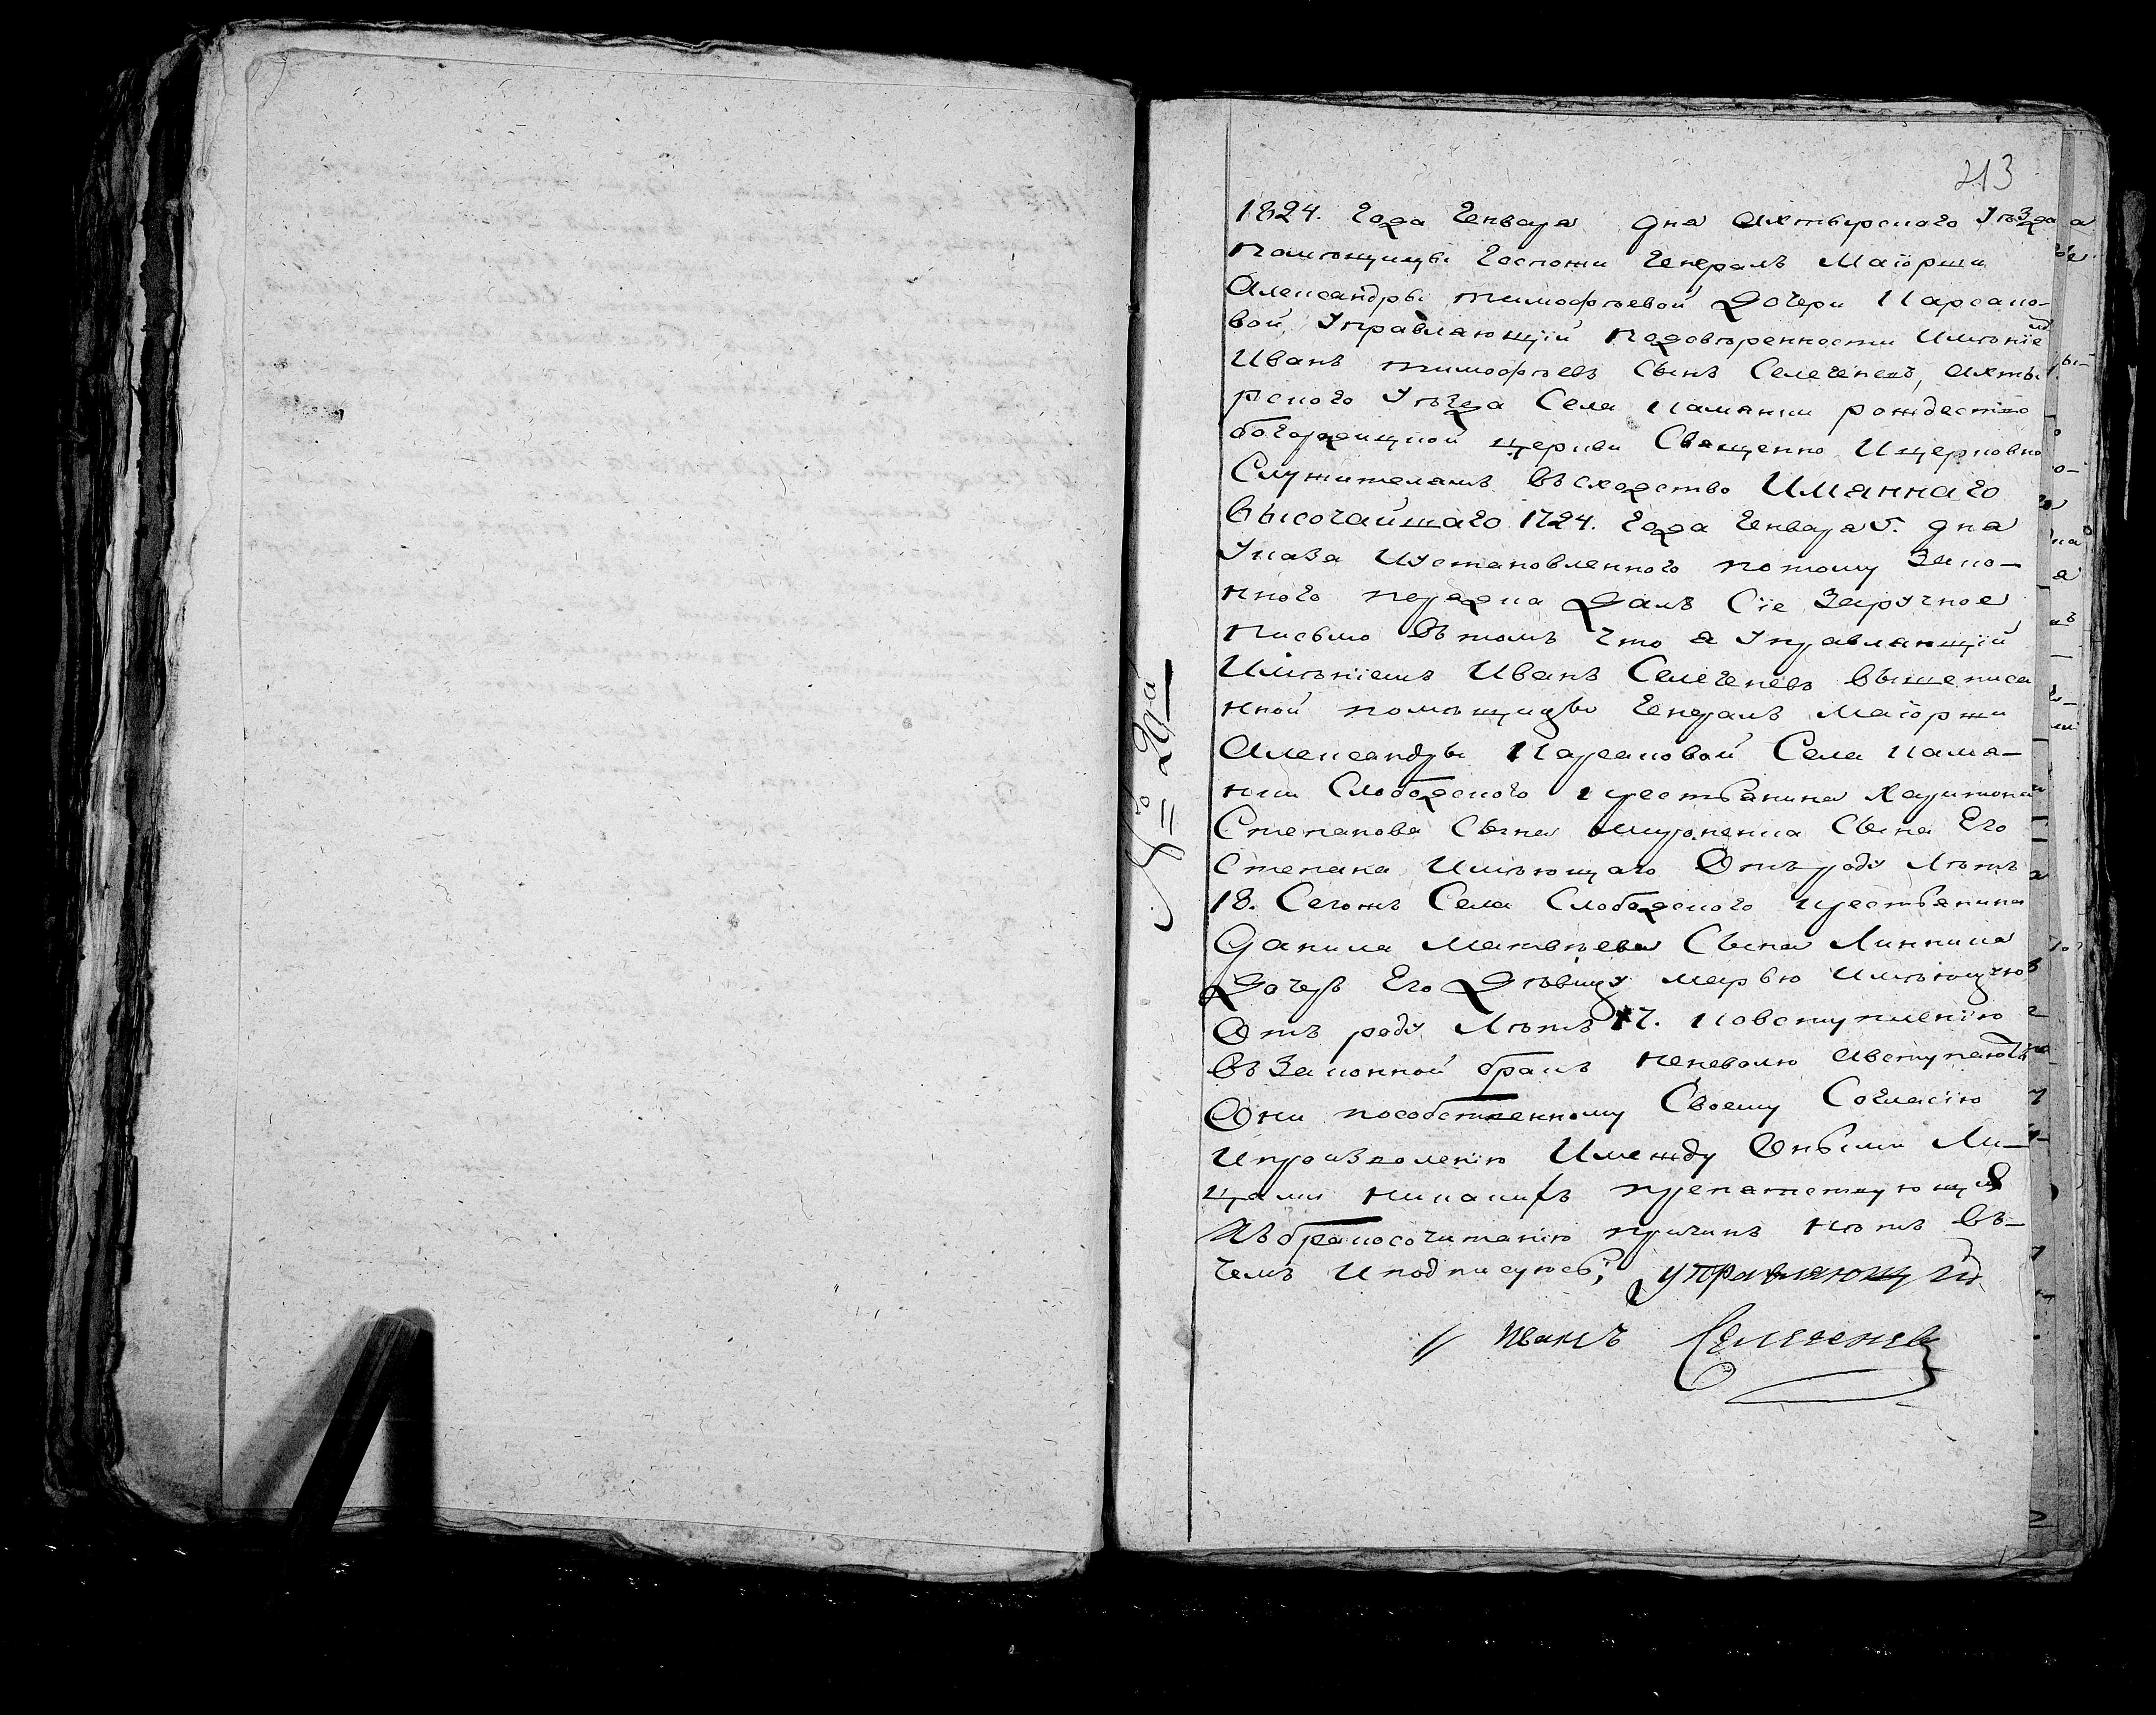 213
№ 2й
1824. Года Генваря дня Ахтырскаго Уѣзда
Помѣщицы Госпожи Генералъ Маіорши
Александры тимофѣевой Дочери Карсако-
вой, Управляющій Подовѣренности Имѣніемъ
Иванъ тимофѣевъ Сынъ Селегеневъ, Ахты
рского Уѣзда Села каманки рождество
богородицкой церкви Священно Ицерковно
Служителямъ Всходство Имяннаго
Высочайшаго 1724. Года Генваря 5. дня
Указа Иустановленного потому Зако-
нного порядка Далъ Сіе Заручное
Письмо Втомъ что я Управляющій
Имѣніемъ Иванъ Селегеневъ Вышеписа
нной помѣщицы Генералъ Маіоржи
Александры Карсаковой Села кама-
нки Слободского крестьянина Харитона
Степанова Сына Сына Его
Степана Имѣющаго Отъ роду Лѣтъ
18. Сегожъ Села Слободского крестьянина
Данила Матвѣева Сына Линника
Дочерь Его Дѣвицу марѳю Имѣющую
Отъ роду Лѣтъ 17. Ковступленію
Въ Законной бракъ неневолю Авступаютъ
Они пособственному Своему Согласію
Ипроизволенію Имежду Оными Ли-
цами никакихъ препятствующихъ
Къ бракосочитанію причинъ нѣтъ Въ-
чемъ Иподписуюсь, управляющій
Иванъ Селегеневъ